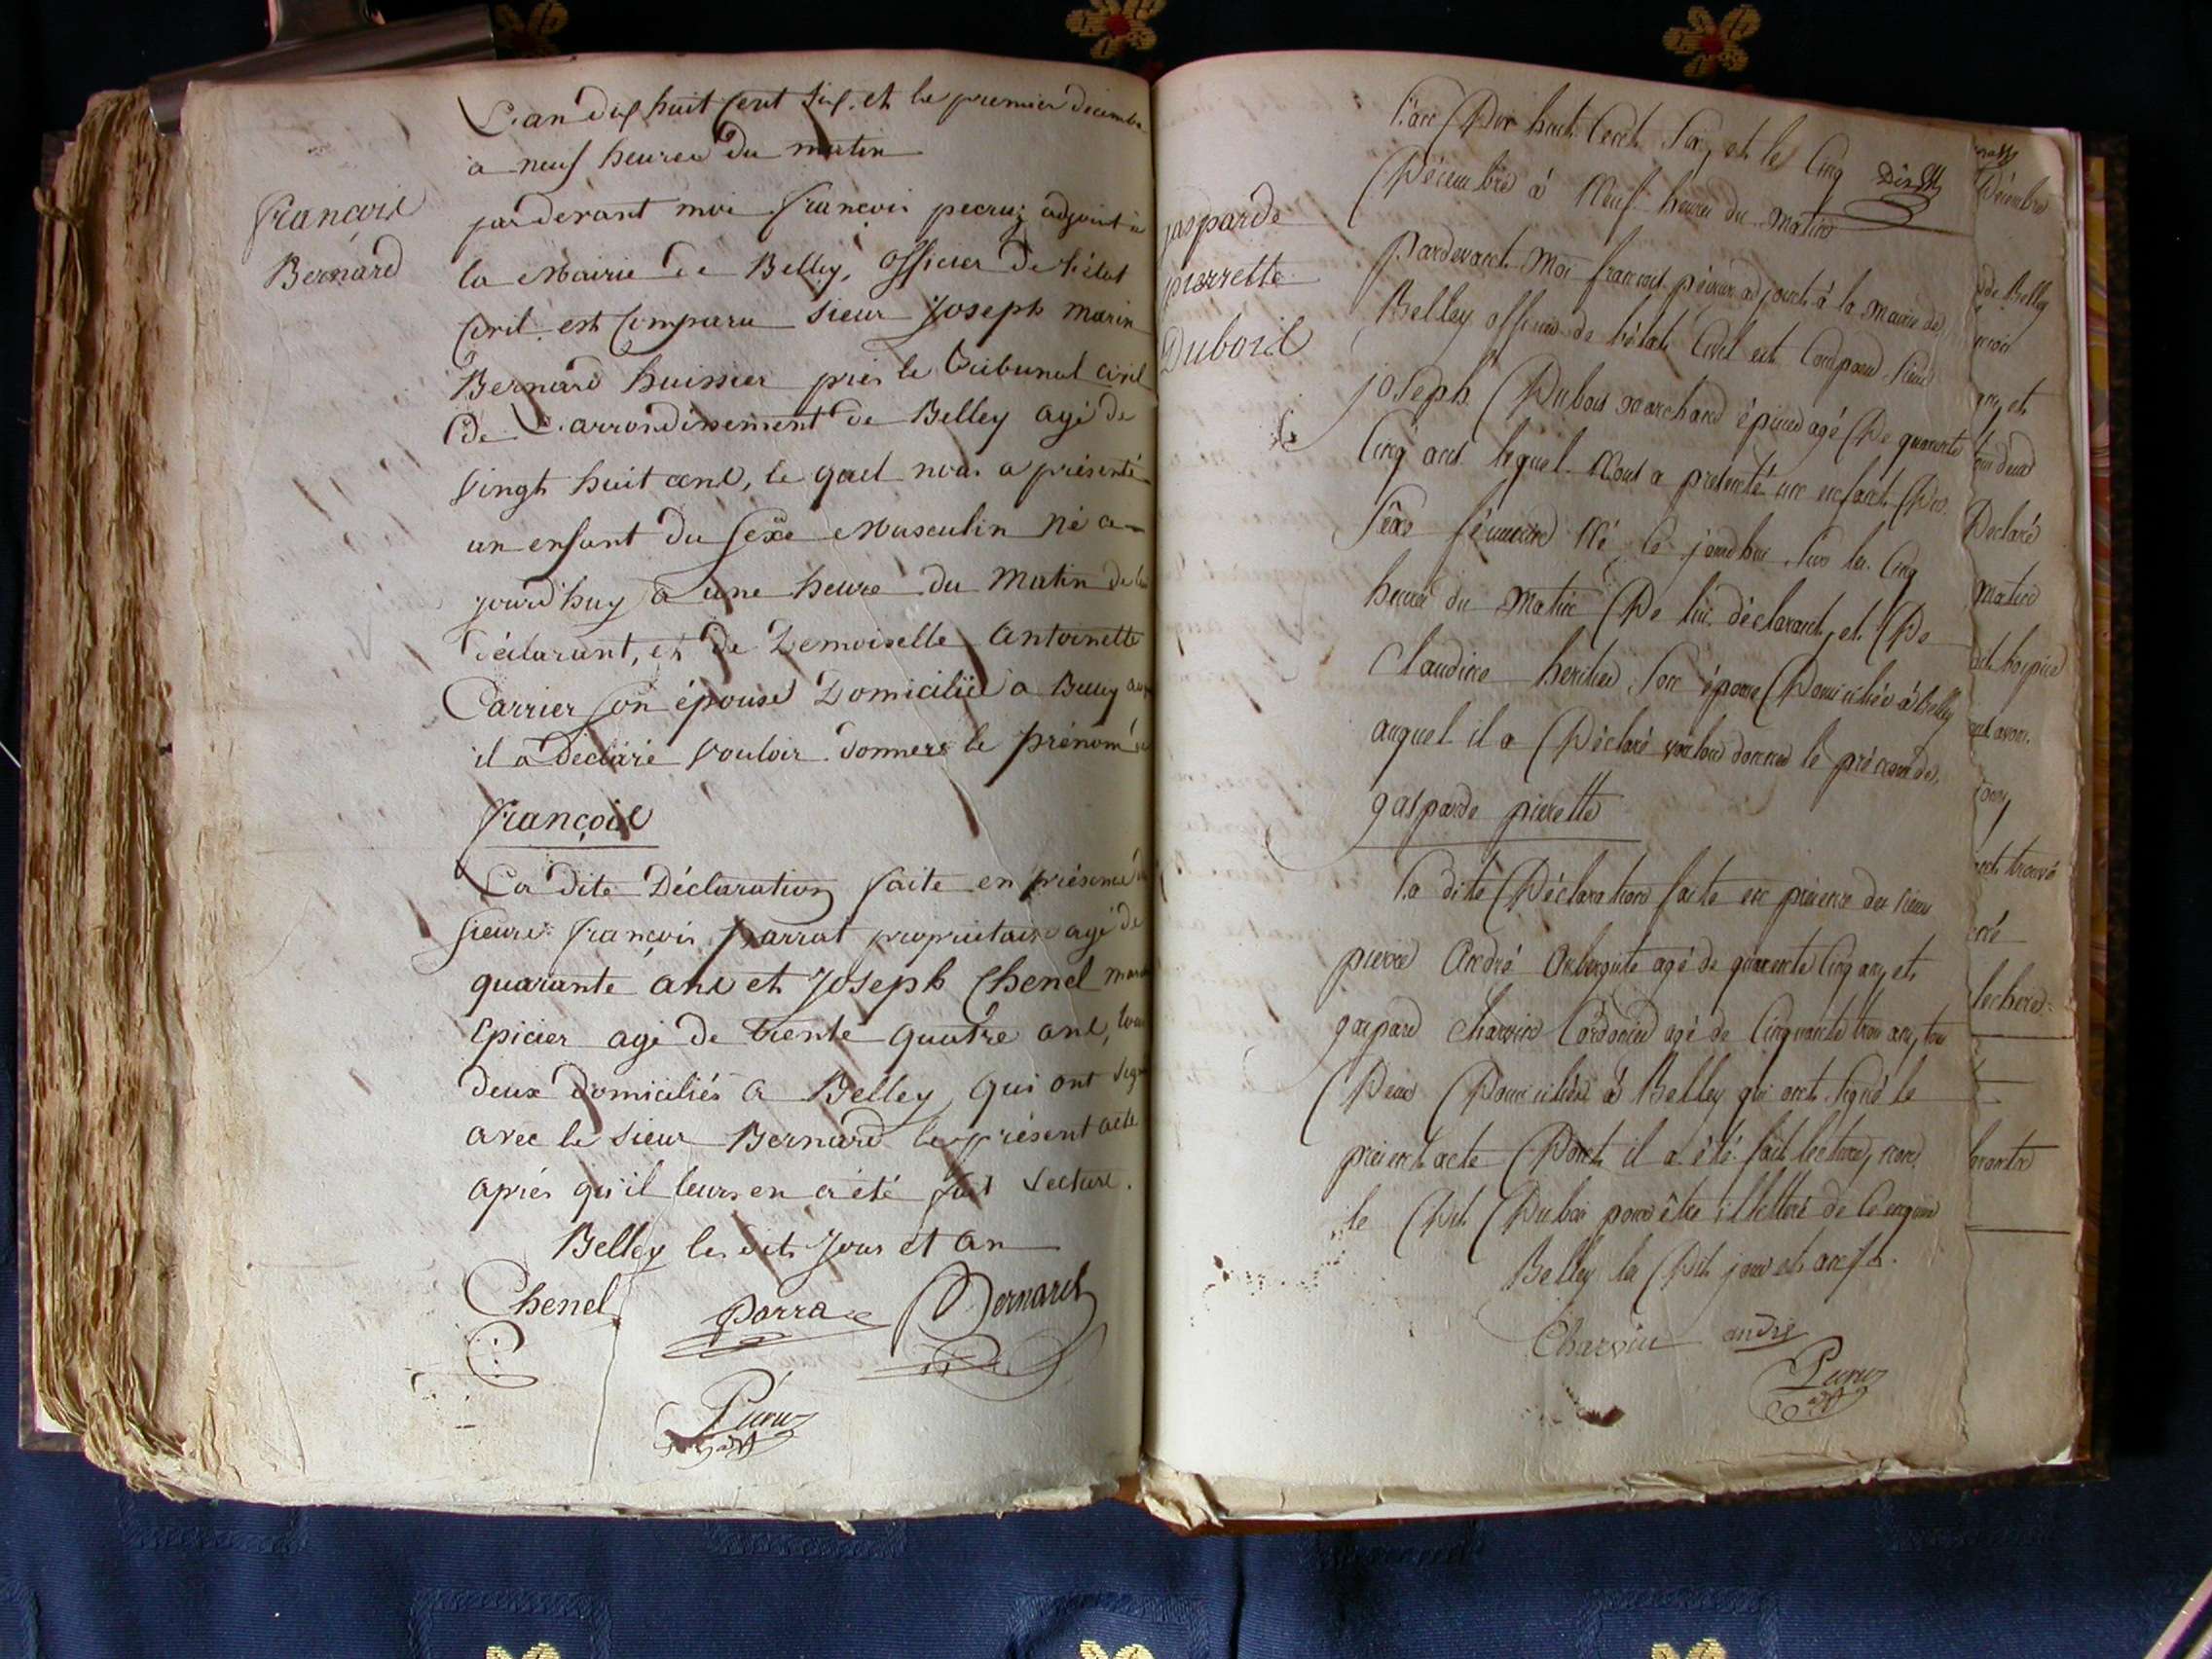 L'an dix huit cent six, et le premier decembre
a neuf heures du matin
François
Bernard
pardevant moi françois pecruz adjoint a
la Mairie de Belley, officier de l'état
Civil est Comparu Sieur Joseph Marin
Bernard huissier près le tribunal civil
de L'arrondissement de Belley agé de
vingt huit ans, le quel nous a présenté
un enfant du Sexe Masculin né a
jourd'huy a une heure du Matin de lui
déclarant, et de Demoiselle Antoinette
Carrier Son épouse Domiciliée a Belley
il a déclaré vouloir donner le prénom
François
La dite Déclaration faite en présence
sieurs françois parrat propriétaire agé de
quarante ans et Joseph Chenel
Epicier agé de trente quatre ans, tous
deux domiciliés a Belley, qui ont signé
avec le sieur Bernard le présent acte
après qu'il leurs en a été fait Lecture.
Belley les dits Jour et an
Chenel Parra Bernard
gasparde
pierrette
Dubois
L'an Dix huit Cent Six, et le Cinq Dix
Décembre à Neuf heures du matin
Pardevant Moi françois adjoint à la mairie de
Belley officier de l'état Civil est Comparu Sieur
joseph Dubois marchand épicier agé De quarante
Cinq ans lequel Nous a présenté un enfant Du
Sexe féminin Né le jourd'hui sur les Cinq
heures du Matin De lui déclarant, et De
Claudine heritier Son épouse Domiciliée à Belley
auquel il a Déclaré vouloir donner le prénom de
gasparde pierrette
La dite Déclaration faite en présence des sieurs
pierre André Aubergiste agé de quarante Cinq ans, et
gaspard Charvin Cordonier agé de Cinquante trois ans, tous
Deux Domiciliés à Belley qui ont signé le
présent acte Dont il a été fait lecture, non
le Dit Dubois pour être illettré de Ce enquis
Belley les Dit jour et an
Charvin andré
Décembre
de Belley
moi
et
deux
Déclaré
matin
hospice
avons
trouvé